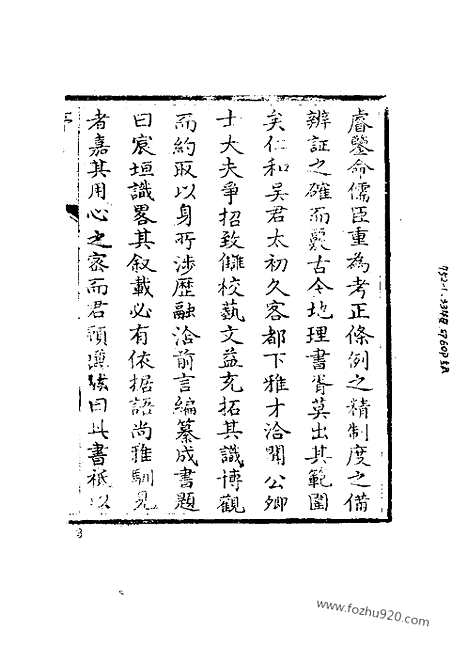 睿鑒命儒臣重為考正條例之精制度之備
辨証之確而襲古今地理書胥莫出其範圍
矣仁和吳君太初久客都下雅才洽聞公卿
士大夫爭招致讎校藝文益充拓其識博觀
而約取以身所涉歷融洽前言編纂成書題
曰宸垣識畧其敘載必有依据語尚雅馴見
者嘉其用心之密而君顧謙然曰此書祇以
www.fozhu920.com